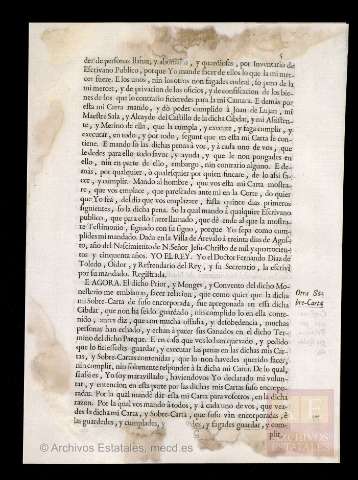 der de personas llanas, y abonadas, y quantiosas, por Inventario de
Escrivano Publico, porque Yo mande facer de ellos lo que la mi mer-
ced fuere. E los unos, nin los otros non fagades ende al, so pena de la
mi merced, y de privacion de los oficios, y de confiscacion de los bie-
nes de los que lo contrario ficieredes para la mi Camara. E demás por
esta mi Carta mando, y dò poder cumplido à Joan de Luxan, mi
Maestre Sala, y Alcayde del Castillo de la dicha Cibdat, y mi Asisten-
te, y Merino de ella, que la cumpla, y execute, y faga cumplir, y
executar, en todo, y por todo, segunt que en esta mi Carta se con-
tiene. E mando so las dichas penas à vos, y à cada uno de vos, que
le dedes para ello todo favor, y ayuda, y que le non pongades en
ello, nin en parte de ello, embargo, nin contrario alguno. E de-
más, por qualquier, ò qualesquier por quien fincare, de lo asi fa-
cer, y cumplir. Mando al hombre, que vos esta mi Carta mostra-
re, que vos emplace, que parescades ante mi en la Corte, do quier
que Yo sea, del dia que vos emplazare, fasta quince dias primeros
siguientes, so la dicha pena. So la qual mando à qualquier Escrivano
publico, que para esto fuere llamado, que dè ende al que la mostra-
re Testimonio, signado con su signo, porque Yo sepa como cum-
plides mi mandado. Dada en la Villa de Arevalo à treinta dias de Agos-
to, año del Nascimiento de N. Señor Jesu-Christo de mil y quatrocien-
tos y cinquenta años. YO EL REY. Yo el Doctor Fernando Diaz de
Toledo, Oidor, y Refrendario del Rey, y su Secretario, la escriví
por su mandado. Registrada.
E AGORA. El dicho Prior, y Monges, y Convento del dicho Mo-
nesterio me embiaron, facer relacion, que como quier que la dicha
mi Sobre-Carta de suso encorporada, fue pregonada en essa dicha
Cibdat, que non ha seido guardado, nin cumplido lo en ella conte-
nido, antes diz, que con mucha osadia, y desobediencia, muchas
personas han echado, y echan à pacer sus Ganados en el dicho Ter-
mino del dicho Parque. E en caso que vos lo han quexado, y pedido
que lo ficiessedes guardar, y executar las penas en las dichas mis Car-
tas, y Sobre-Cartas contenidas, que lo non havedes querido facer,
nin cumplir, nin solamente responder à la dicha mi Carta. De lo qual,
si assi es, Yo soy maravillado, haviendovos Yo declarado mi volun-
tat, y entencion en esta parte por las dichas mis Cartas suso encorpo-
radas. Por lo qual mandè dàr esta mi Carta para vosotros, en la dicha
razon. Por la qual vos mando à todos, y à cada uno de vos, que vea-
des la dicha mi Carta, y Sobre-Carta, que suso vàn encorporadas, è
las guardedes, y cumplades, y fagades guardar, y cum-
plir
Otra So-
bre-Carta
© Archivos Estatales, mecd.es
ARCHIVOS
ESTATALES